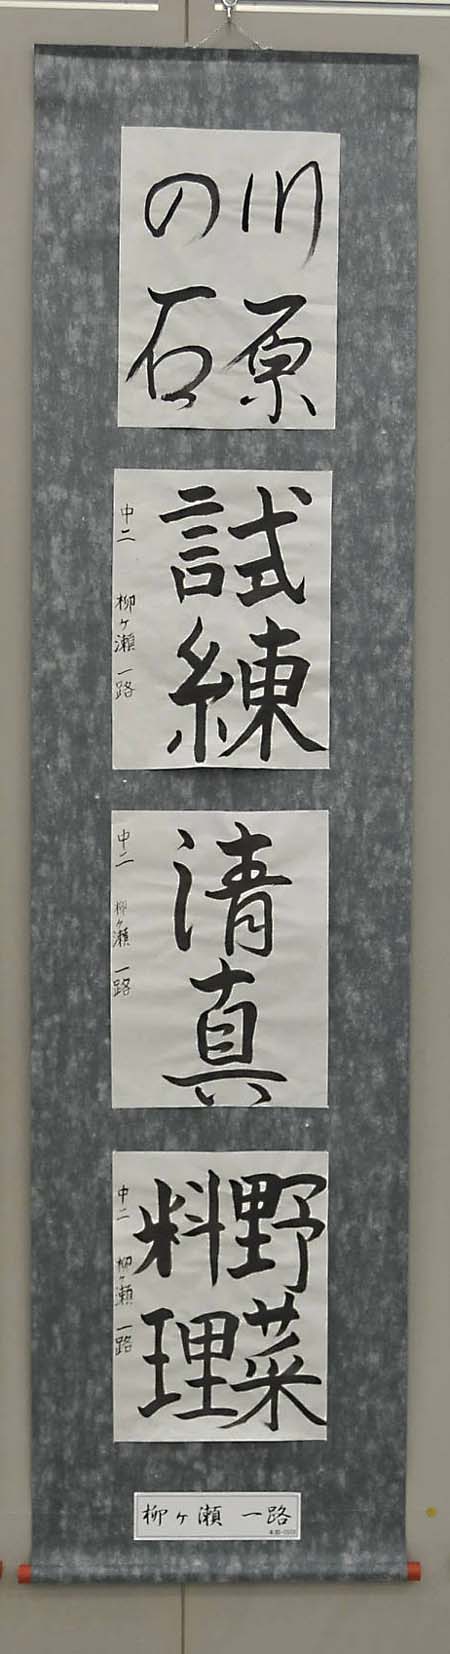 川原
の石
試練
中二 柳ヶ瀬 一路
清真
中二 柳ヶ瀬 一路
野菜
料理
中二 柳ヶ瀬 一路
柳ヶ瀬 一路